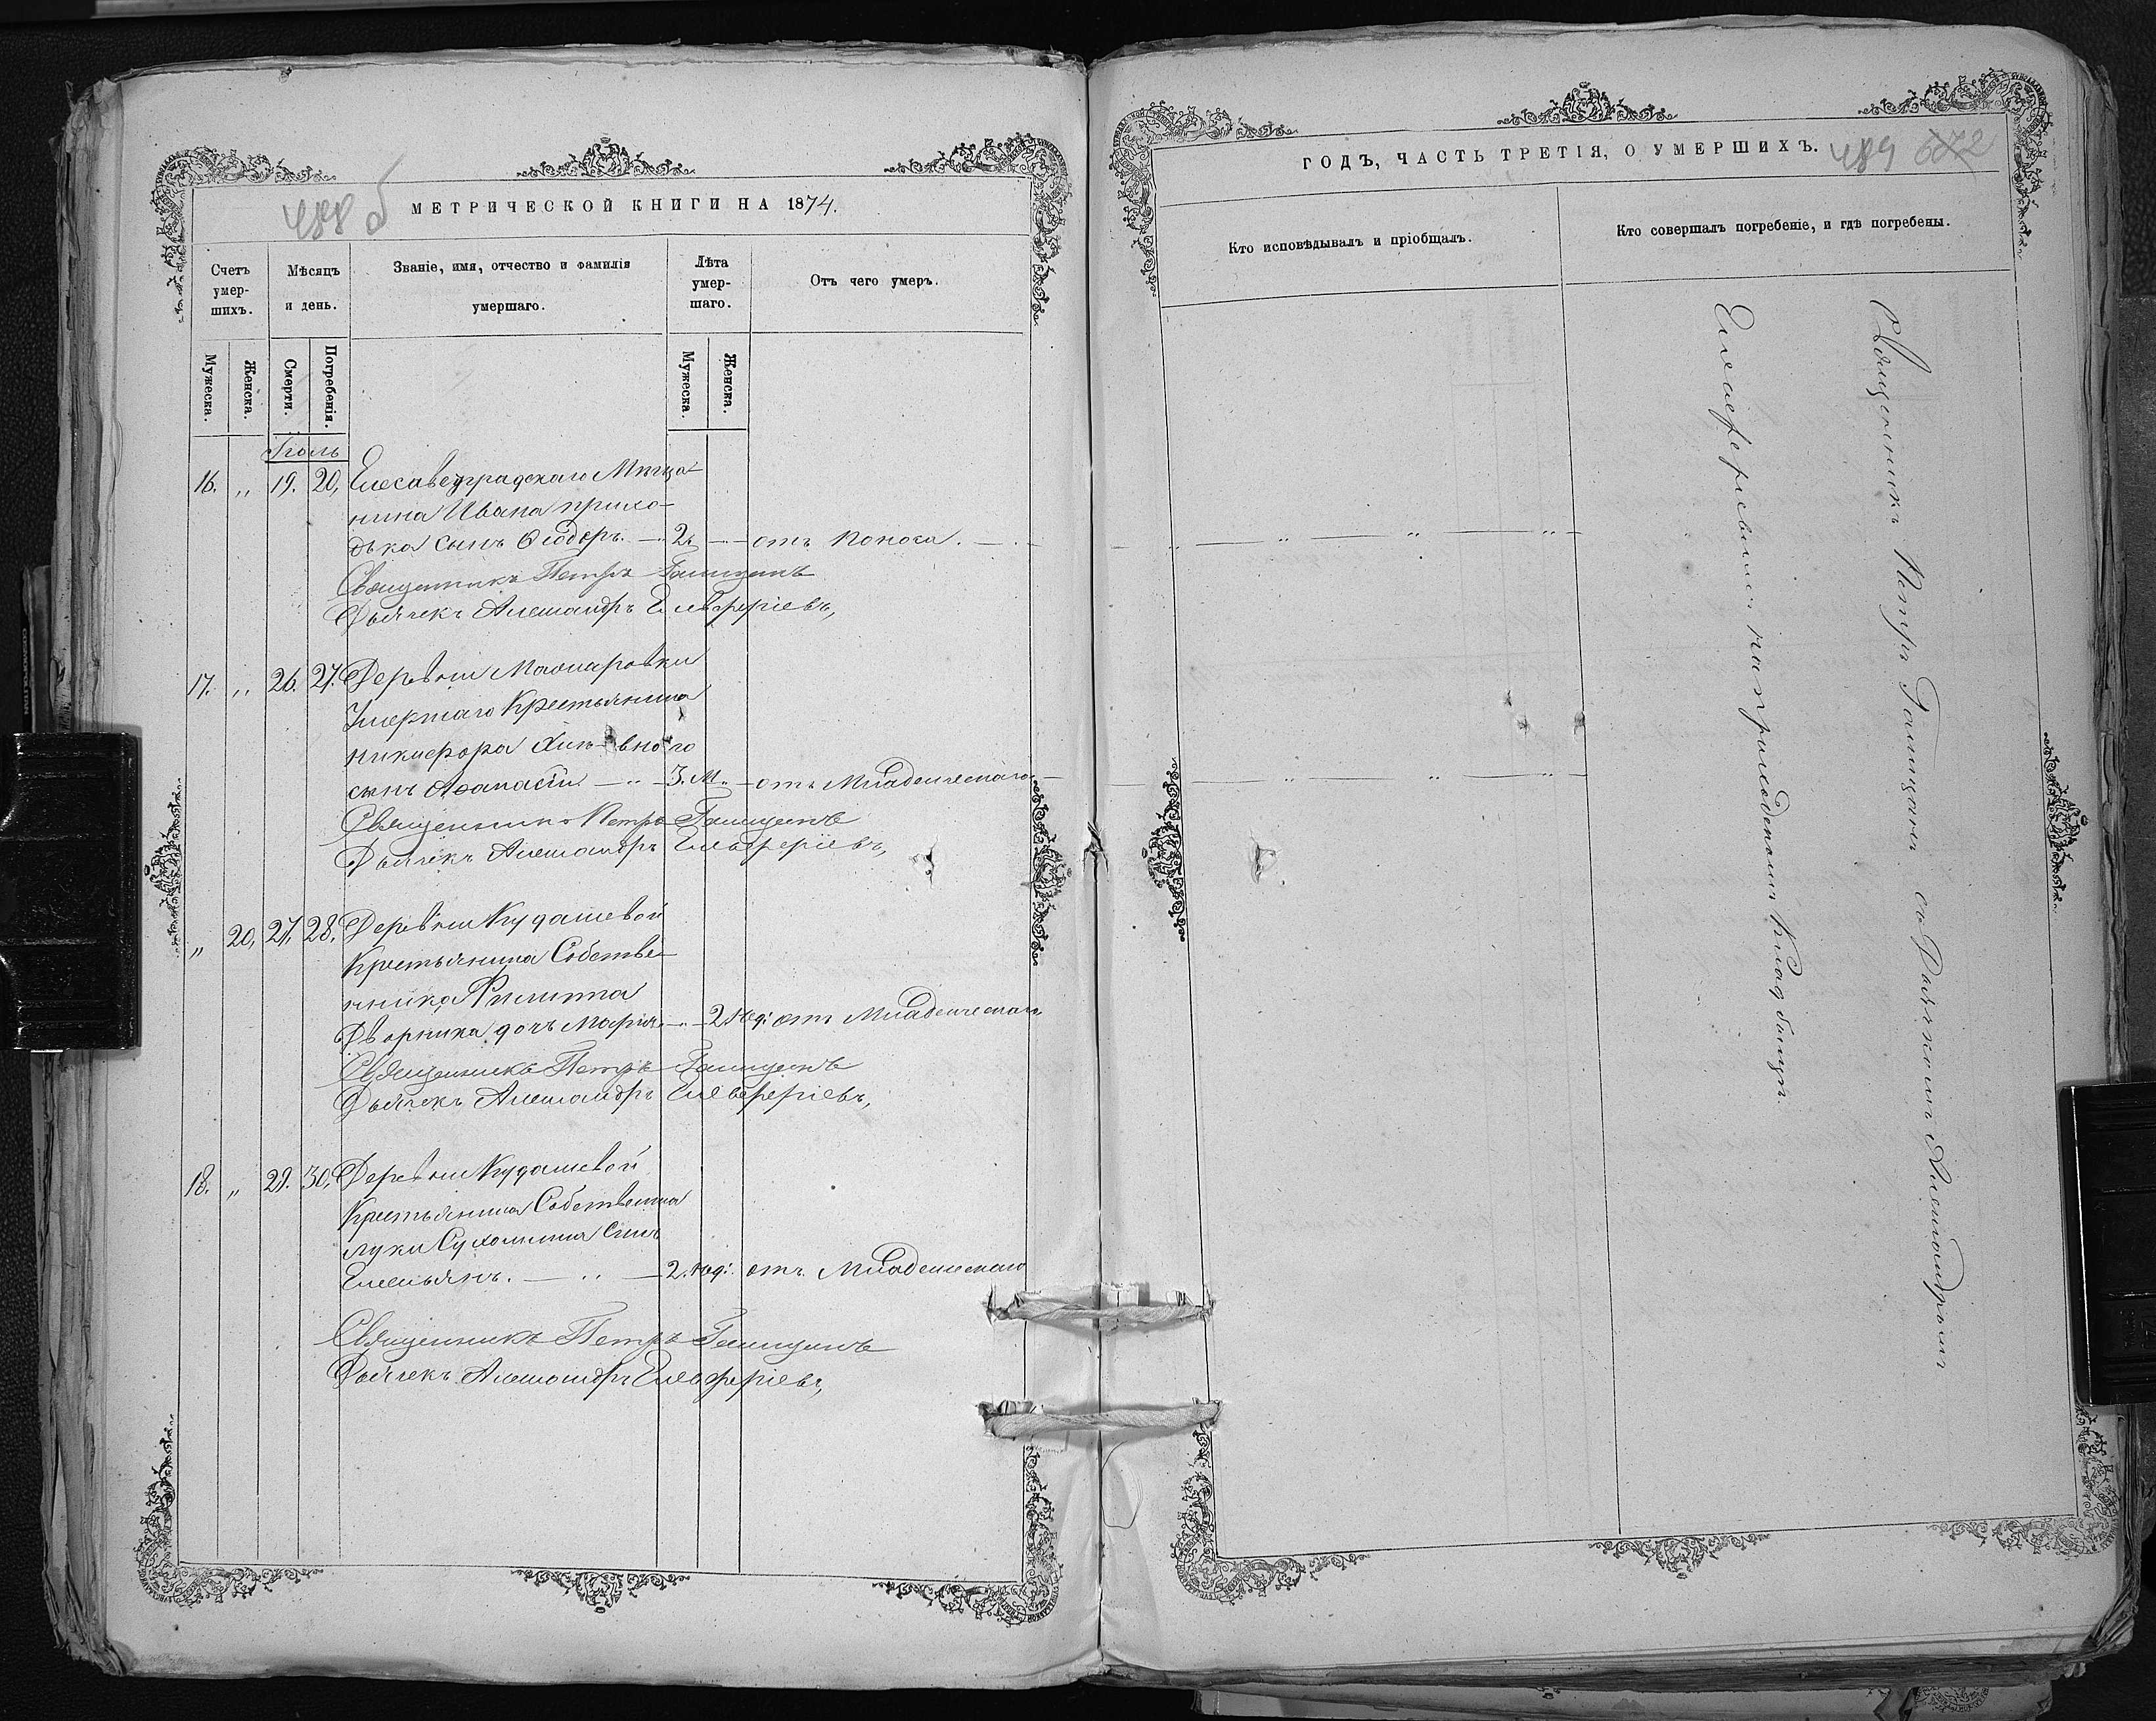 488 об
МЕТРИЧЕСКОЙ КНИГИ НА 1874.
Счетъ умер-шихъ.
Мѣсяцъ и день.
Званіе, имя, отчество и фамилія умершаго.
Лѣта умер-шаго.
Отъ чего умеръ.
Мужеска.
Женска.
Смерти.
Погребенія.
Мужеска.
Женска.
Іюль
16. „ 19. 20, Елисаветградскаго Мѣща-
нина Ивана прихо-
дька сынъ Ѳеодоръ. — 2. — отъ поноса. —
Священникъ Петръ
Дьячекъ Александръ Елевферіевъ,
17. „ 26. 27. Деревни
Умершаго Крестьянина
Никифора
сынъ Аѳанасій — „ — 3. м. — отъ Младенческаго
Священникъ Петръ
Дьячекъ Александръ Елевферіевъ,
„ 20, 27. 28. Деревни Кудашевой
Крестьянина Собстве-
нника Филиппа
Дворника дочь Марія — „ — 2 нед: отъ Младенческаго
Священникъ Петръ
Дьячекъ Александръ Елевферіевъ,
18. „ 29. 30, Деревни Кудашевой
Крестьянина Собственника
Луки Сухомлина сынъ
Емельянъ. — „ — 2. нед: отъ Младенческаго
Священникъ Петръ
Дьячекъ Александръ Елевферіевъ,
ГОДЪ, ЧАСТЬ ТРЕТІЯ, О УМЕРШИХЪ.
489 672
Кто исповѣдывалъ и пріобщалъ.
Кто совершалъ погребеніе, и гдѣ погребены.
Священникъ Петръ съ Дьячкомъ Александромъ
Елевферіевымъ на приходскомъ Кладбищѣ.